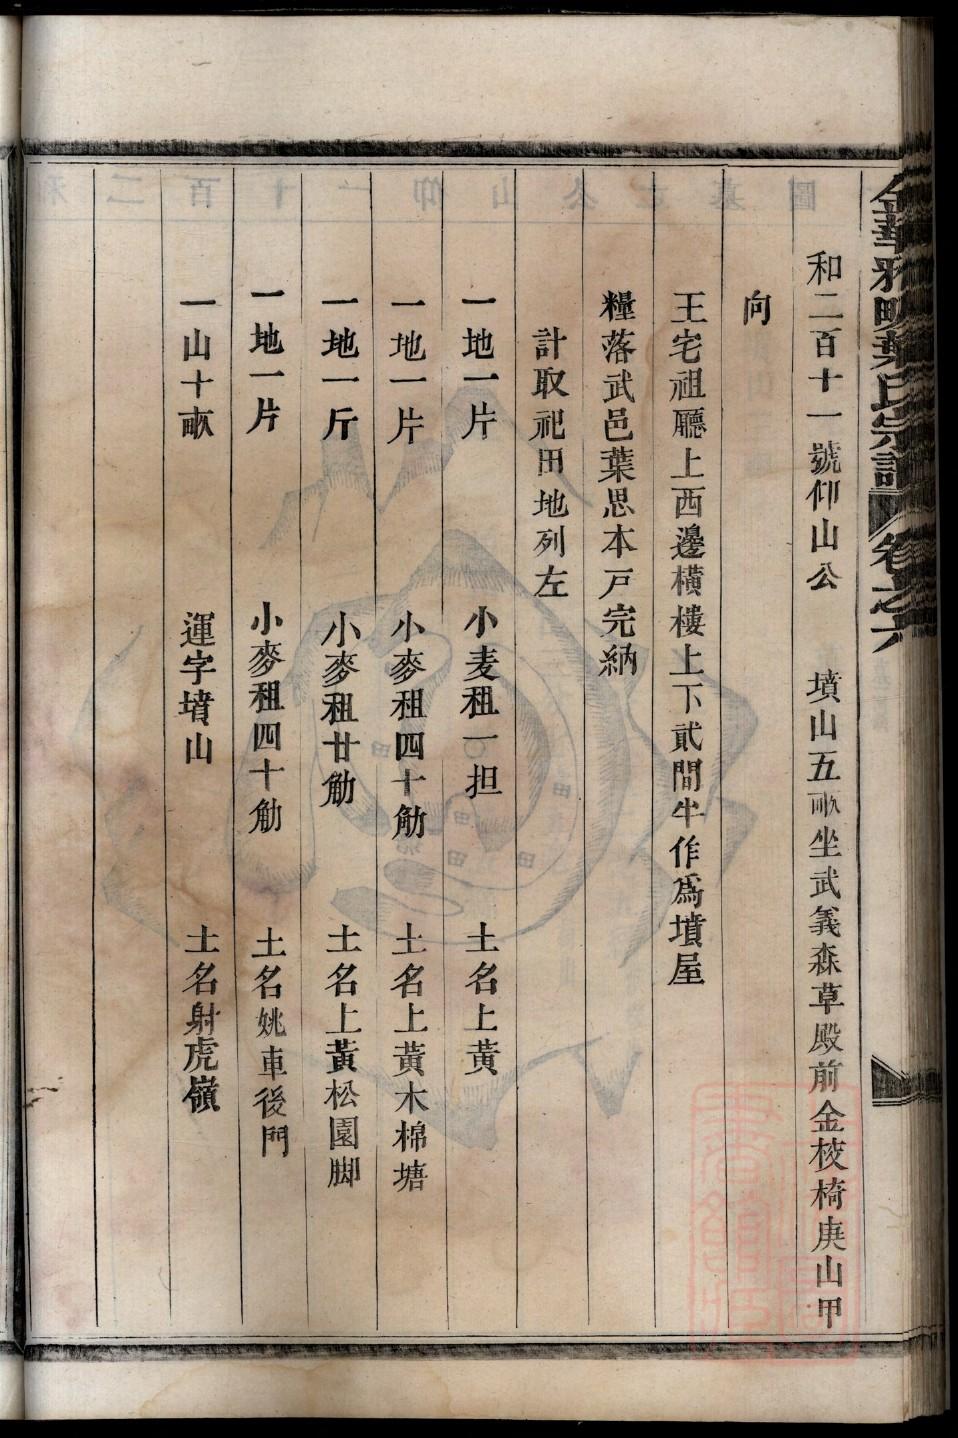 和二百十一號仰山公　墳山五畝坐武義森草殿前金校椅庚山甲
向
王宅祖廳上西邊橫樓上下貳間半作爲墳屋
糧落武邑葉思本戶完納
計取祀田地列左
一地一片　小麦租一担　土名上黃
一地一片　小麥租四十觔　土名上黃木棉塘
一地一斤　小麥租廿觔　土名上黃松園脚
一地一片　小麥租四十觔　土名姚車後門
一山十畝　運字墳山　土名射虎嶺